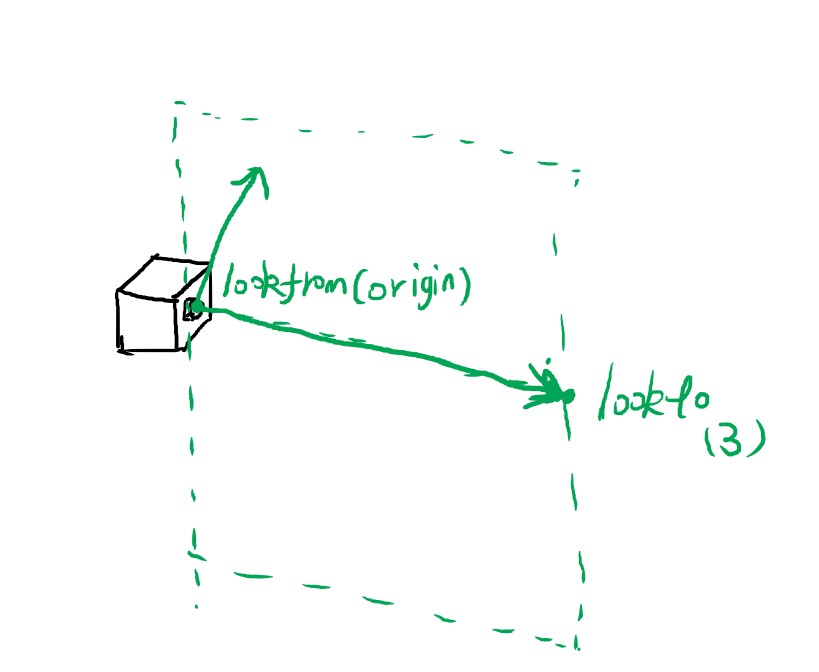 lookfrom(origin)
lookto
(3)